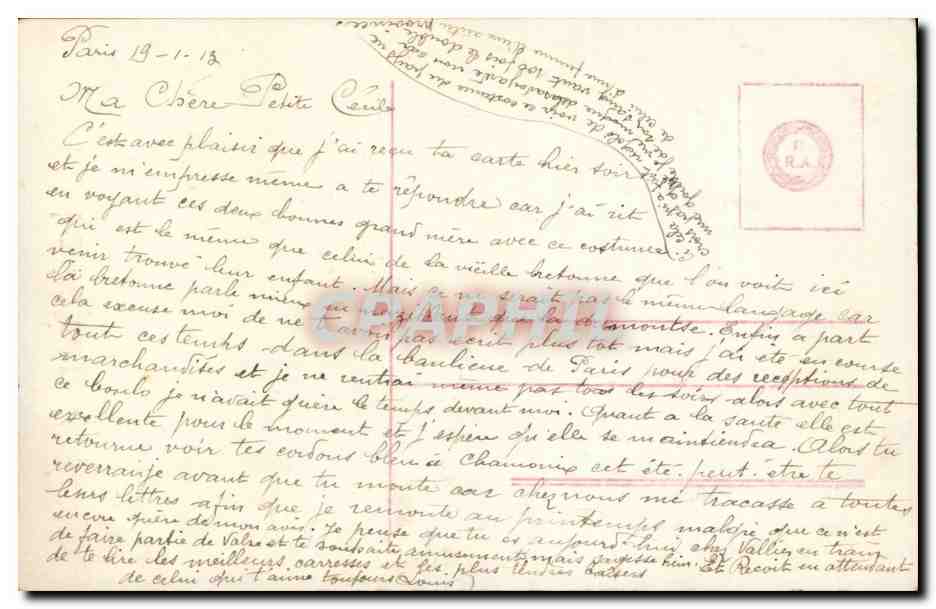 Paris 19-1-13
Ma Chère Petite Cécile
C'est avec plaisir que j'ai reçu ta carte hier soir
et je m'empresse même a te répondre car j'ai rit
en voyant ces deux bonnes grand mère avec ce costume
qui est le même que celui de la vieille bretonne que l'on voit ici
venir trouvé leur enfant. Mais ce ne serait pas le même langage car
la bretonne parle mieux que la Enfin a part
cela excuse moi de ne t'avoir pas écrit plus tot mais j'ai été en course
tout ces temps dans la banlieue de Paris pour des receptions de
marchandises et je ne rentrai même pas tous les soirs alors avec tout
ce boulo je n'avait guère le temps devant moi. Quant a la santé elle est
excellente pour le moment et j'espère qu'elle se maintiendra. Alors tu
retourne voir tes cordons bleu à Chamonix cet été peut être te
reverrai je avant que tu monte car chez nous me tracasse a toutes
leurs lettres afin que je remonte au printemps malgré que ce n'est
encore guère de mon avis. Je pense que tu es aujourd'hui chez Vallier en train
de faire partie de Valse et te souhaite amusement mais
Et Reçoit en attendant
de te lire les meilleurs carresses et les plus tendres baisers
de celui qui t'aime toujours Louis
de voir ce costume du pays
vaut 100 fois le double
province
R.A.
CPAPHIL